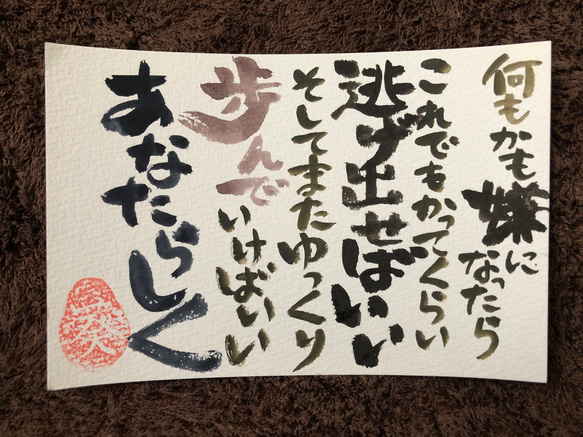 何もかも嫌に
なったら
これでもかってくらい
逃げ出せばいい
そしてまたゆっくり
歩んで
いけばいい
あなたらしく
葵